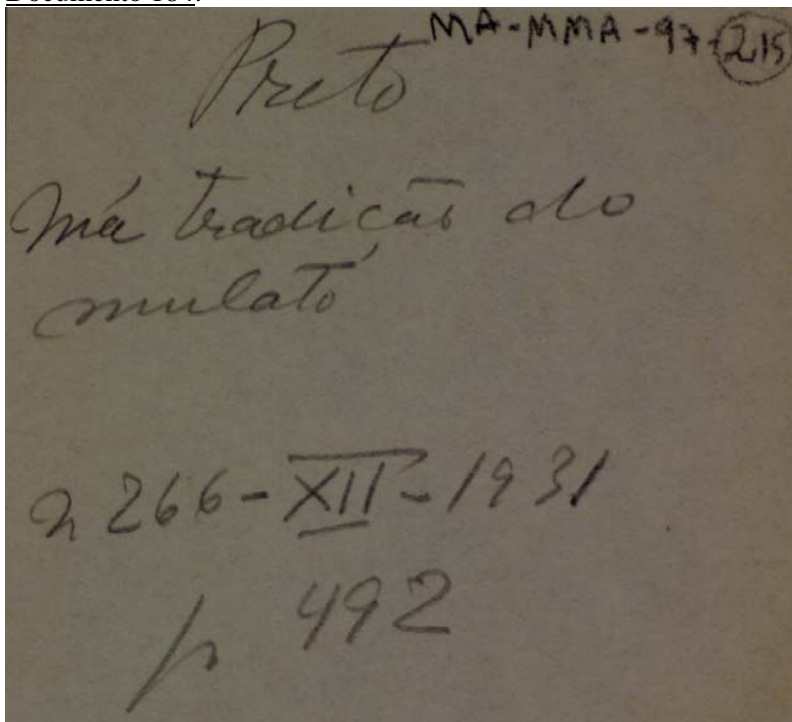 Documento 164:
MA-MMA-97-215
Preto
Má tradição do
mulato
n 266-XII-1931
p 492